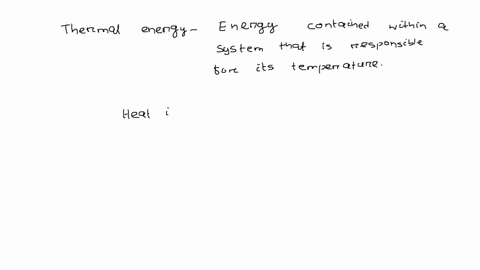 Thermal energy - Energy contained within a
system that is responsible
for its temperature.
Heat i